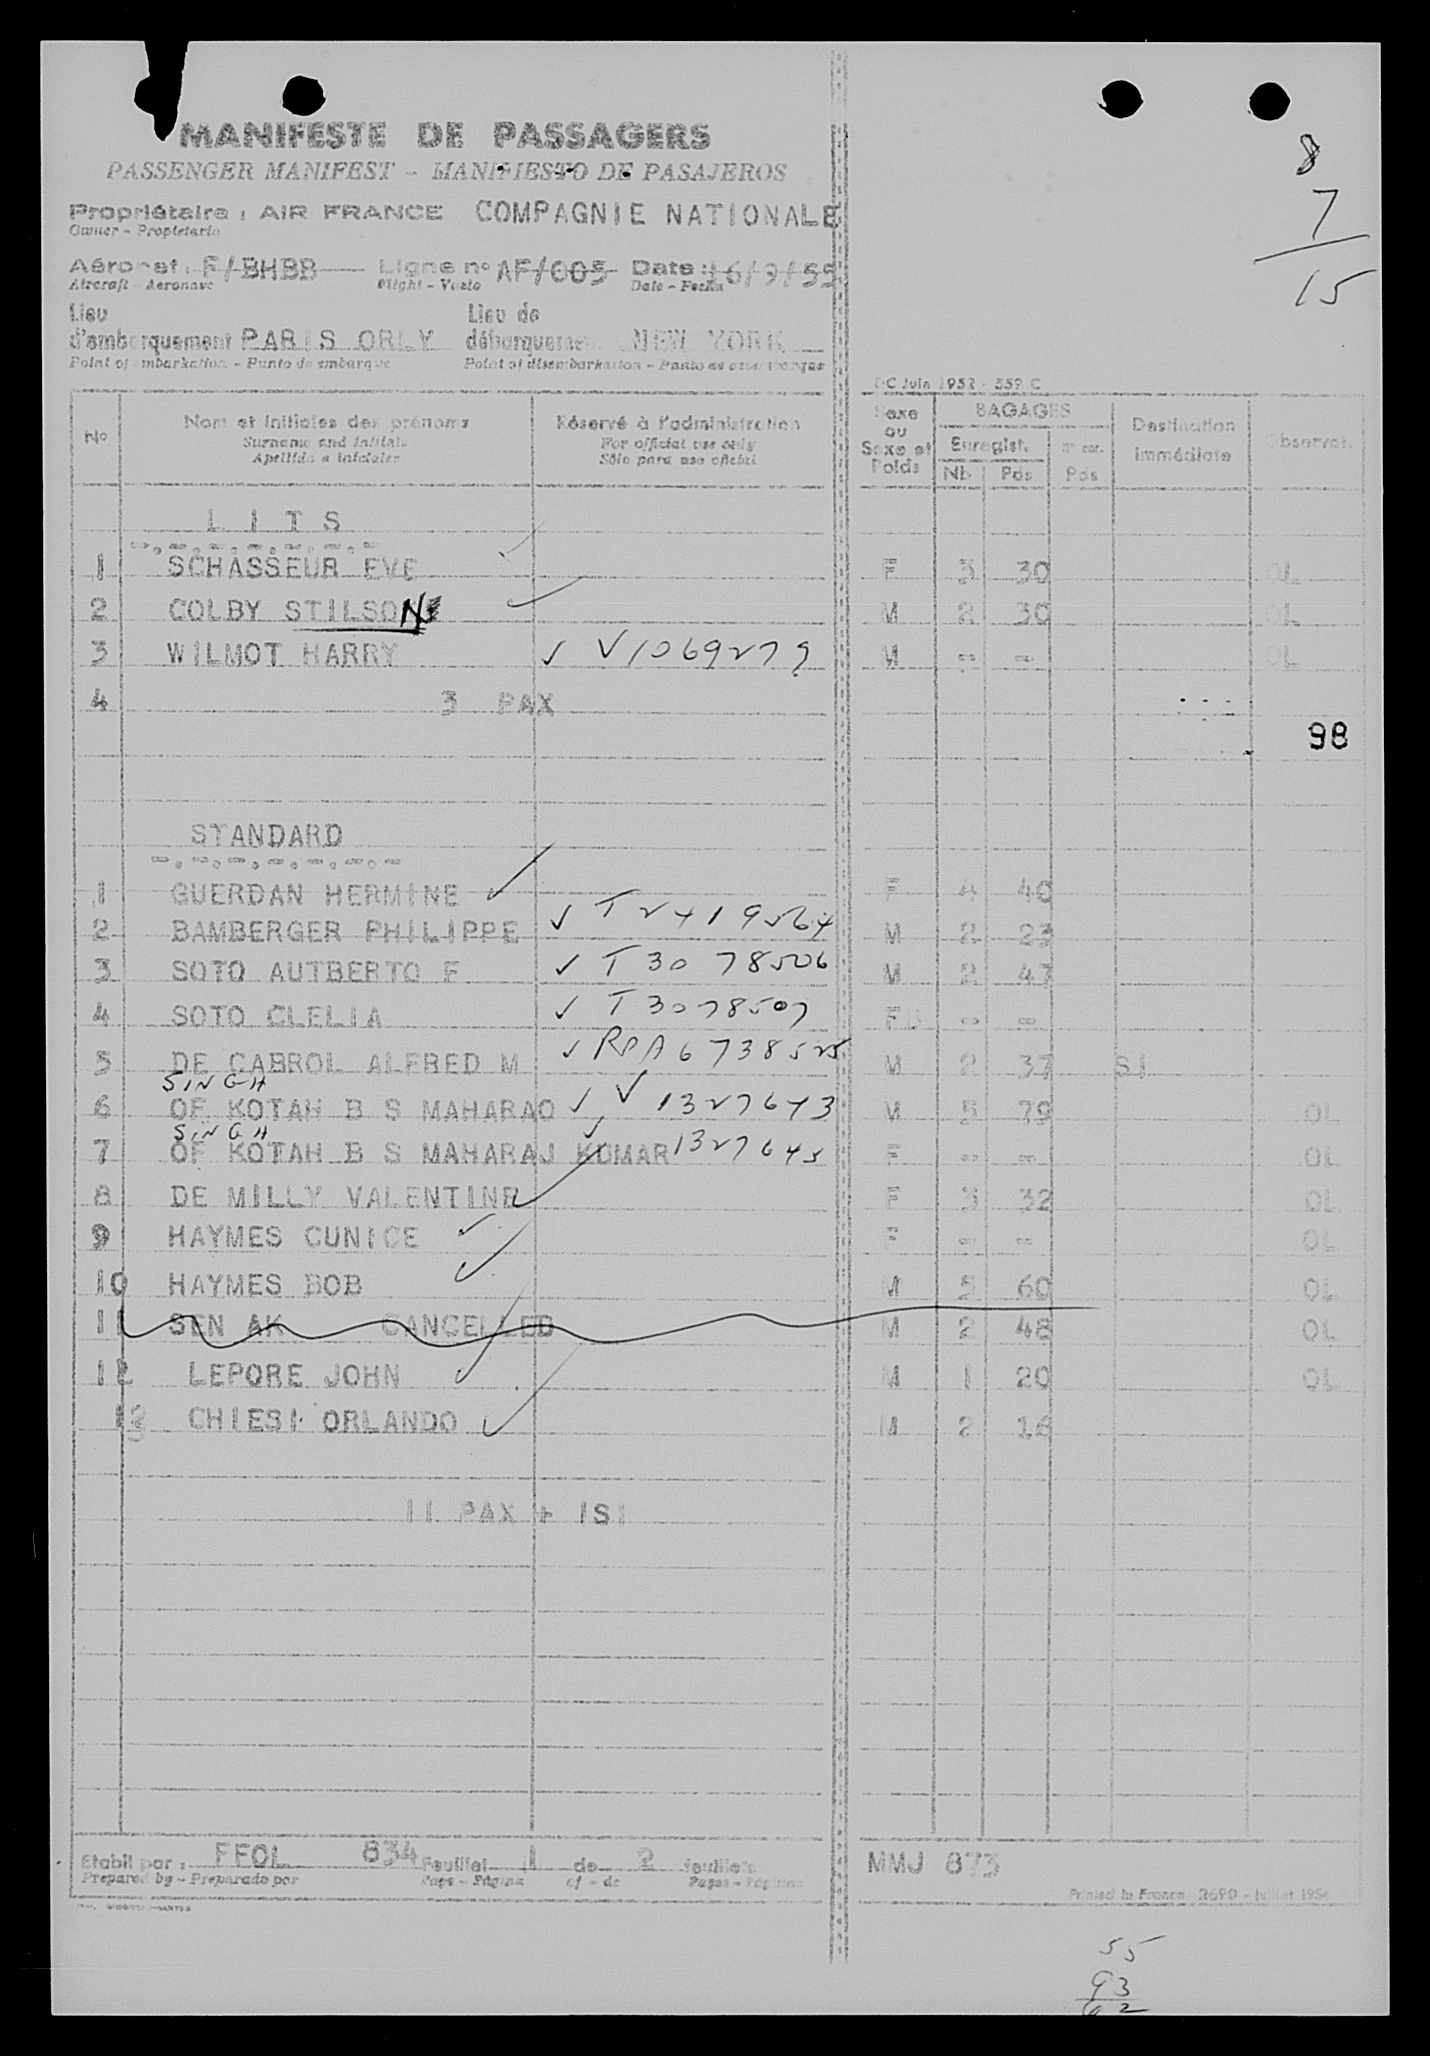 MANIFESTE DE PASSAGERS
PASSENGER MANIFEST - MANIFIESTO DE PASAJEROS
8
7
15
Propriétaire : AIR FRANCE COMPAGNIE NATIONALE
Owner - Propietario
Aéronef : F/BHBB Ligne n° AF/005 Date : 16/9/55
Aircraft - Aeronave Flight - Vuelo Date - Fecha
Lieu d'embarquement PARIS ORLY Lieu de débarquement NEW YORK
Point of embarkation - Punto de embarque Point of disembarkation - Punto de
DC Juin 1952 - 559 C
N° Nom et initiales des prénoms Réservé à l'administration Sexe ou Sexe et Poids BAGAGES Destination immédiate Observat.
Surname and initials For official use only Enregist.
Apellido e iniciales Sólo para uso oficial Nb Pds Pds
LITS
1 SCHASSEUR EVE F 3 30 OL
2 COLBY STILSON M 2 30 OL
3 WILMOT HARRY ✓ V1069279 M - - OL
4 3 PAX
98
STANDARD
1 GUERDAN HERMINE F 4 40
2 BAMBERGER PHILIPPE ✓ T2419564 M 2 23
3 SOTO AUTBERTO F ✓ T3078506 M 2 47
4 SOTO CLELIA ✓ T3078507 F - -
5 DE CABROL ALFRED M ✓ RPA6738525 M 2 37 SI
SINGH
6 OF KOTAH B S MAHARAO ✓ V 1327643 M 5 79 OL
SINGH
7 OF KOTAH B S MAHARAJ KUMAR 1327645 F - - OL
8 DE MILLY VALENTINE F 3 32 OL
9 HAYMES CUNICE F - - OL
10 HAYMES BOB M 5 60 OL
11 SEN AK CANCELLED M 2 48 OL
12 LEPORE JOHN M 1 20 OL
13 CHIESI ORLANDO M 2 16
11 PAX + 1SI
Etabli par : FFOL 834 Feuillet 1 de 2 feuillets MMJ 873
Prepared by - Preparado por Page - Página of - de Pages - Páginas
Printed in France 2690 - Juillet 1954
55
93
62